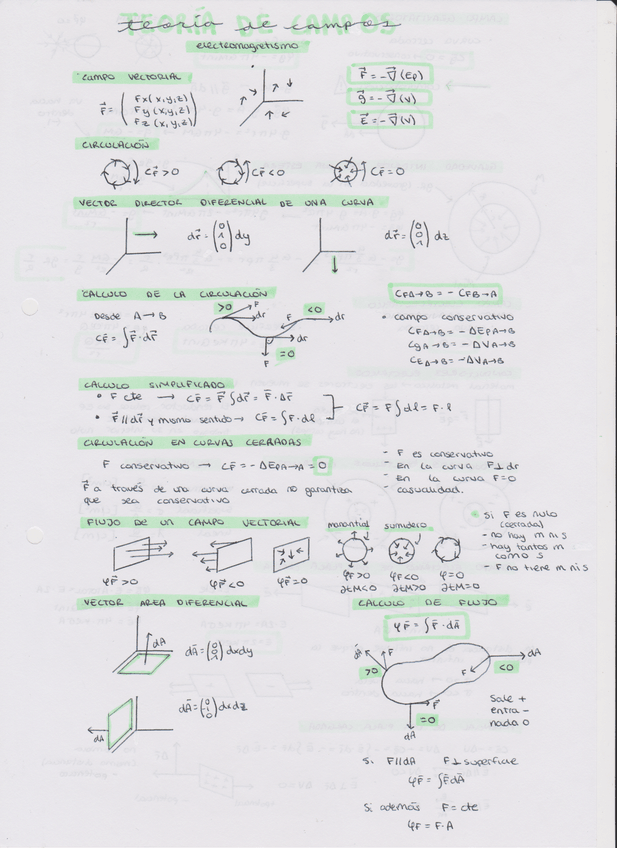 teoría de campos
electromagnetismo
CAMPO VECTORIAL
F⃗ = ( Fx(x,y,z) Fy(x,y,z) Fz(x,y,z) )
F⃗ = -∇⃗(Ep)
g⃗ = -∇⃗(V)
E⃗ = -∇⃗(V)
CIRCULACIÓN
CF⃗ > 0
CF⃗ < 0
CF⃗ = 0
VECTOR DIRECTOR DIFERENCIAL DE UNA CURVA
dr⃗ = (0 1 0) dy
dr⃗ = (0 0 -1) dz
CALCULO DE LA CIRCULACIÓN
Desde A → B
CF⃗ = ∫F⃗·dr⃗
>0
F
dr
F
<0
dr
dr
F
=0
CFA→B = -CFB→A
• campo conservativo
CFA→B = -ΔEpA→B
CgA→B = -ΔVA→B
CEA→B = -ΔVA→B
CALCULO SIMPLIFICADO
• F cte → CF⃗ = F⃗∫dr⃗ = F⃗·Δr⃗
• F⃗∥dr⃗ y mismo sentido → CF⃗ = ∫F·dl
CF⃗ = F∫dl = F·l
CIRCULACIÓN EN CURVAS CERRADAS
F conservativo → CF⃗ = -ΔEpA→A = 0
F⃗ a través de una curva cerrada no garantiza
que sea conservativo
- F es conservativo
- En la curva F⊥dr
- en la curva F=0
- casualidad.
FLUJO DE UN CAMPO VECTORIAL
manantial
sumidero
φF⃗ > 0
φF⃗ < 0
φF⃗ = 0
φF > 0
φF < 0
φ = 0
• Si F es nulo
(cerrada)
- no hay m ni s
- hay tantos m
como s
- F no tiene m ni s
VECTOR AREA DIFERENCIAL
dA
dA⃗ = (0 0 1) dxdy
dA
dA⃗ = (0 -1 0) dxdz
CALCULO DE FLUJO
φF⃗ = ∫F⃗·dA⃗
dA
F
>0
F
dA
<0
F
=0
dA
Sale +
entra -
nada 0
Si F∥dA F⊥superficie
φF⃗ = ∫F dA
Si además F = cte
φF = F·A